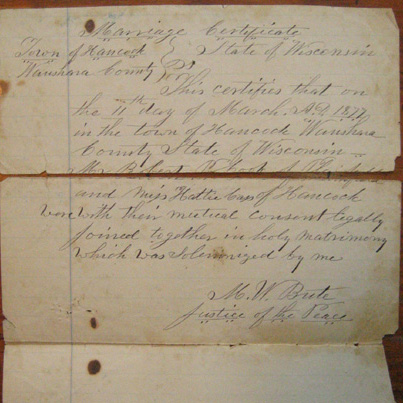 Marriage Certificate
Town of Hancock } State of Wisconsin
Waushara County
This certifies that on
the 11th day of March A.D. 1877
in the town of Hancock Waushara
County State of Wisconsin
Mr Robert of
and Miss Hattie of Hancock
were with their mutical consent legally
joined together in holy matrimony
which was solemnized by me
M. W.
Justice of the Peace